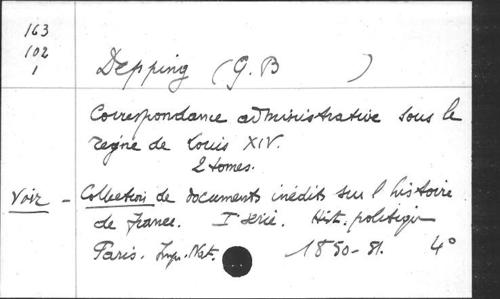 163
102
1
Depping (G.B )
Correspondance administrative sous le
règne de Louis XIV.
2 tomes.
Voir - Collection de documents inédits sur l'histoire
de France. Ie série. Hist. politique
Paris. Imp. Nat. 1850-51. 4°